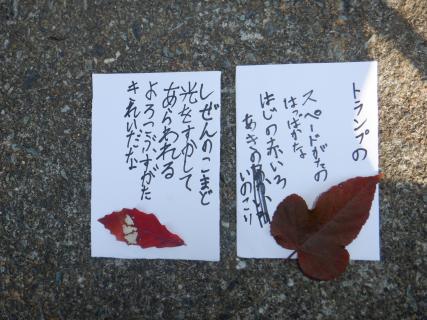 トランプの
スペードがたの
はっぱがな
はじの赤いろ
あきの
いのこり
しぜんのこまど
光をすかして
あらわれる
よろこぶすがた
キれいだな